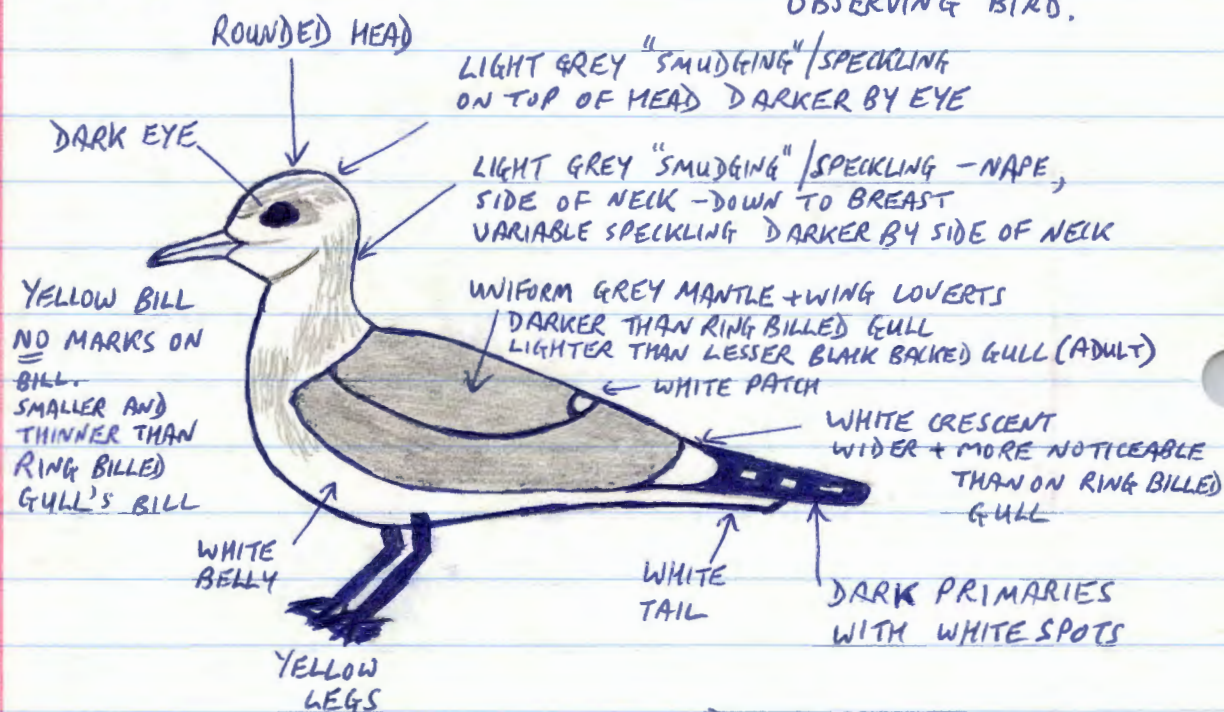 OBSERVING BIRD.
ROUNDED HEAD
LIGHT GREY "SMUDGING"/SPECKLING
ON TOP OF HEAD DARKER BY EYE
DARK EYE
LIGHT GREY "SMUDGING"/SPECKLING - NAPE,
SIDE OF NECK - DOWN TO BREAST
VARIABLE SPECKLING DARKER BY SIDE OF NECK
YELLOW BILL
NO MARKS ON
BILL.
SMALLER AND
THINNER THAN
RING BILLED
GULL'S BILL
UNIFORM GREY MANTLE + WING COVERTS
DARKER THAN RING BILLED GULL
LIGHTER THAN LESSER BLACK BACKED GULL (ADULT)
WHITE PATCH
WHITE CRESCENT
WIDER + MORE NOTICEABLE
THAN ON RING BILLED
GULL
WHITE
BELLY
WHITE
TAIL
DARK PRIMARIES
WITH WHITE SPOTS
YELLOW
LEGS